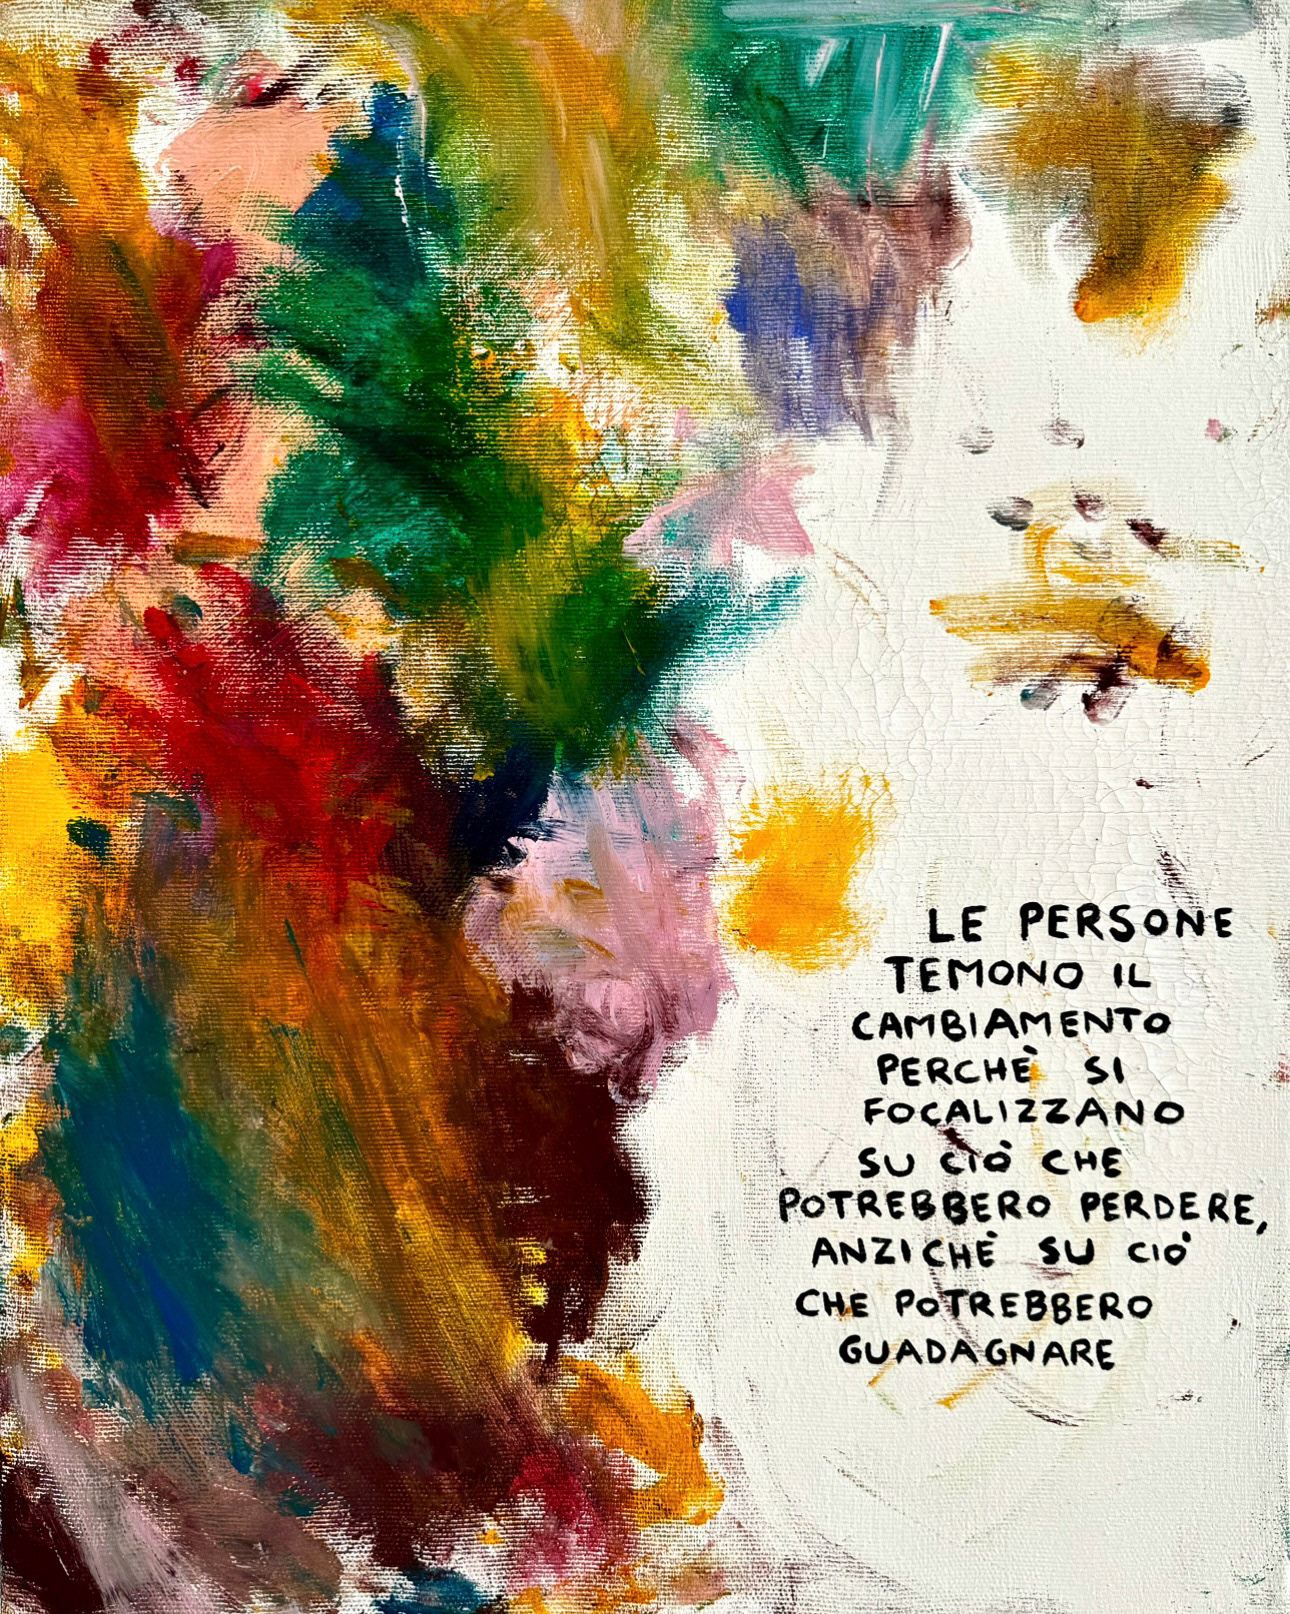 LE PERSONE
TEMONO IL
CAMBIAMENTO
PERCHÈ SI
FOCALIZZANO
SU CIÒ CHE
POTREBBERO PERDERE,
ANZICHÈ SU CIÒ
CHE POTREBBERO
GUADAGNARE